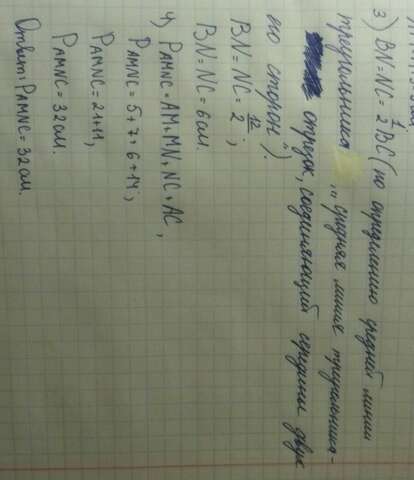 3) BN=NC=1/2BC (по определению средней линии
треугольника „средняя линия треугольника-
отрезок, соединяющий середины двух
его сторон").
BN=NC=12/2;
BN=NC=6см.
4) PAMNC=AM+MN+NC+AC,
PAMNC=5+7+6+14;
PAMNC=21+11,
PAMNC=32см.
Ответ: PAMNC=32см.